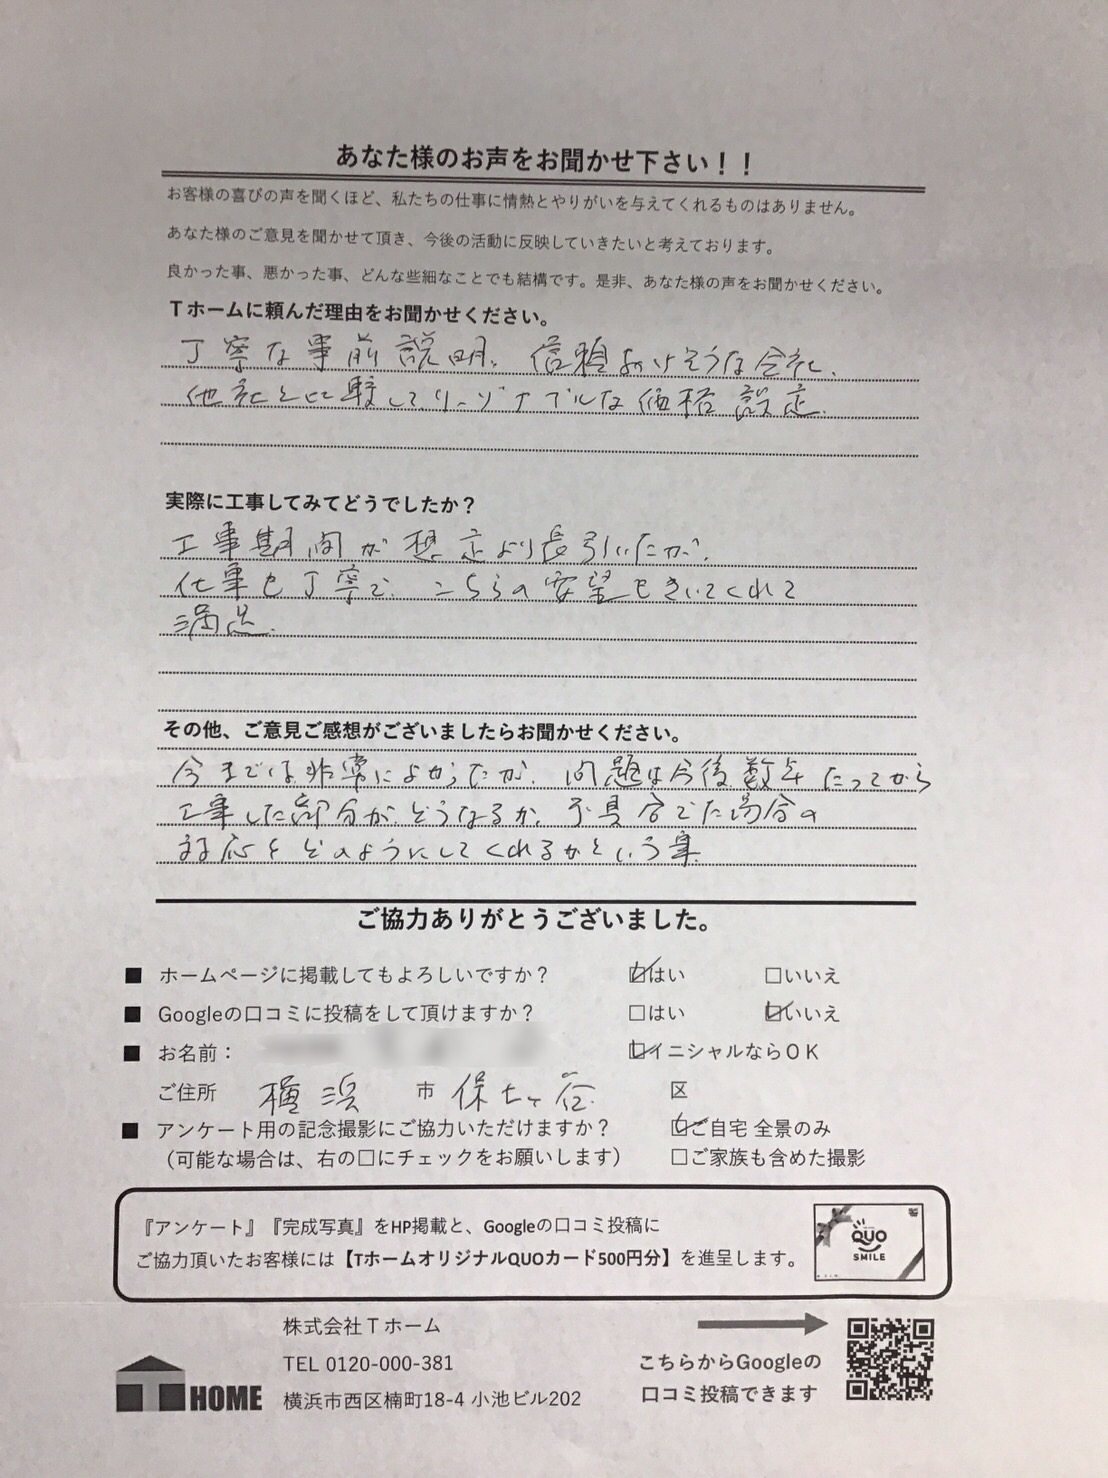 あなた様のお声をお聞かせ下さい！！
お客様の喜びの声を聞くほど、私たちの仕事に情熱とやりがいを与えてくれるものはありません。
あなた様のご意見を聞かせて頂き、今後の活動に反映していきたいと考えております。
良かった事、悪かった事、どんな些細なことでも結構です。是非、あなた様の声をお聞かせください。
Ｔホームに頼んだ理由をお聞かせください。
丁寧な事前説明。信頼おけそうな会社。
他社と比較してリーゾナブルな価格設定。
実際に工事してみてどうでしたか？
工事期間が想定より長引いたが、
仕事も丁寧で、こちらの要望もきいてくれて
満足。
その他、ご意見ご感想がございましたらお聞かせください。
今までは非常によかったが、問題は今後数年たってから
工事した部分がどうなるか、不具合でた場合の
対応をどのようにしてくれるかという事
ご協力ありがとうございました。
■ ホームページに掲載してもよろしいですか？ ☑はい □いいえ
■ Googleの口コミに投稿をして頂けますか？ □はい ☑いいえ
■ お名前： ☑イニシャルならＯＫ
ご住所 横浜 市 保土ヶ谷 区
■ アンケート用の記念撮影にご協力いただけますか？ ☑ご自宅 全景のみ
（可能な場合は、右の□にチェックをお願いします） □ご家族も含めた撮影
『アンケート』『完成写真』をHP掲載と、Googleの口コミ投稿に
ご協力頂いたお客様には【TホームオリジナルQUOカード500円分】を進呈します。
QUO
SMILE
株式会社Ｔホーム
TEL 0120-000-381
横浜市西区楠町18-4 小池ビル202
T HOME
こちらからGoogleの
口コミ投稿できます